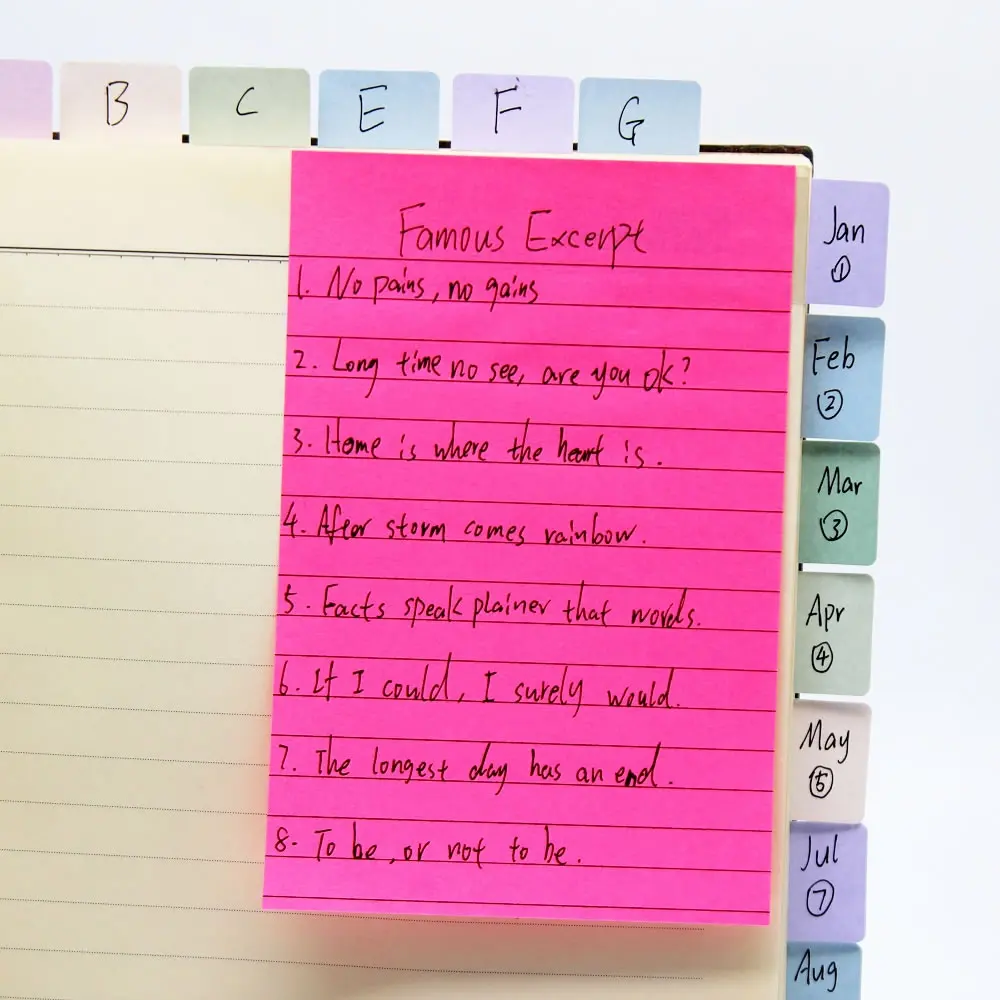 B
C
E
F
G
Famous Excerpt
1. No pains, no gains
2. Long time no see, are you ok?
3. Home is where the heart is.
4. After storm comes rainbow.
5. Facts speak plainer that words.
6. If I could, I surely would.
7. The longest day has an end.
8. To be, or not to be.
Jan
①
Feb
②
Mar
③
Apr
④
May
⑤
Jul
⑦
Aug